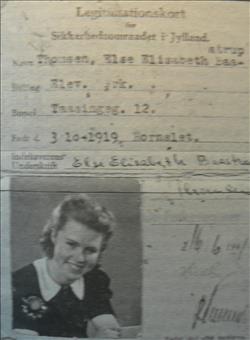 Legitimationskort
for
Sikkerhedsomraadet i Jylland.
strup
Navn Thomsen, Else Elisabeth Baa-
Stilling Elev. frk.
Bopæl Taasingeg. 12.
Født d. 3-10-1919, Hornslet.
Indehaverens
Underskrift Else Elisabeth Baastrup
Thomsen